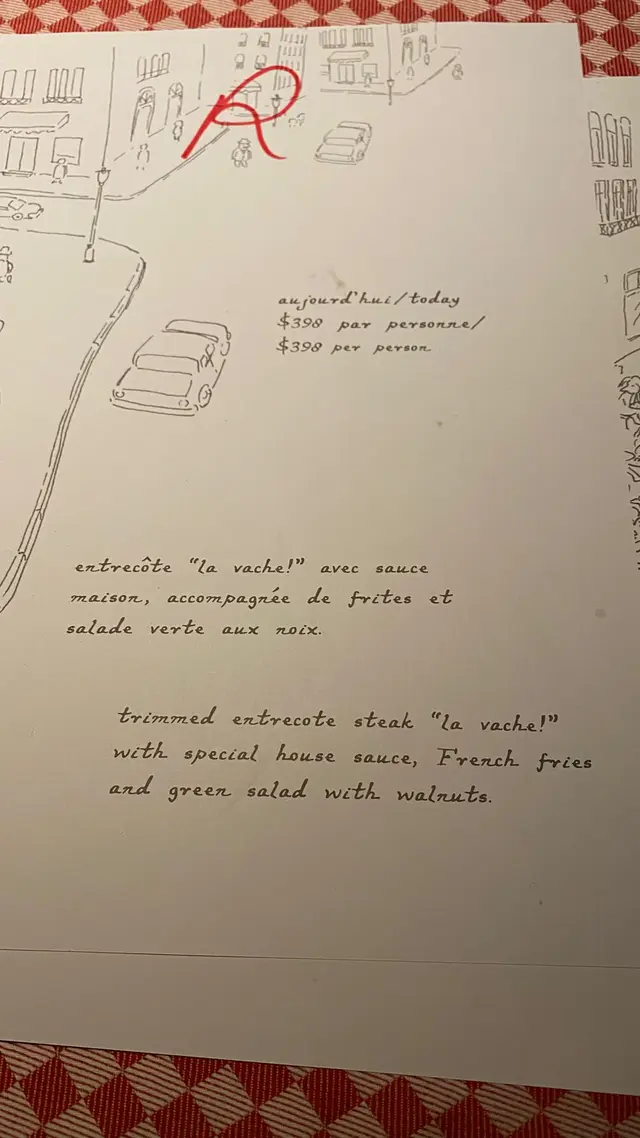 R
aujourd'hui/today
$398 par personne/
$398 per person
entrecôte "la vache!" avec sauce
maison, accompagnée de frites et
salade verte aux noix.
trimmed entrecote steak "la vache!"
with special house sauce, French fries
and green salad with walnuts.